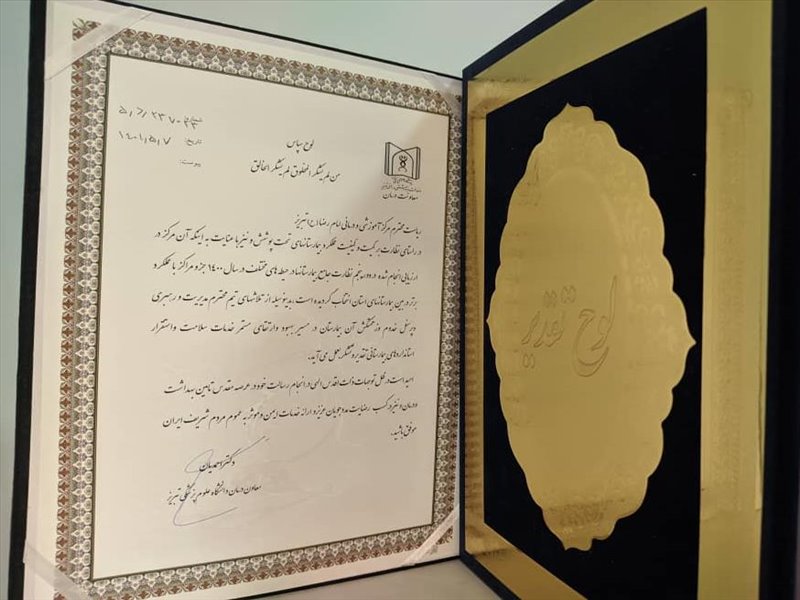 شماره:
۵/د/۲۳۷۰۲۳
تاریخ:
۱۴۰۱/۵/۷
پیوست:
معاونت درمان
لوح سپاس
من لم یشکر المخلوق لم یشکر الخالق
ریاست محترم مرکز آموزشی و درمانی امام رضا(ع) تبریز
در راستای نظارت بر کمیت و کیفیت عملکرد بیمارستانهای تحت پوشش و نیز با عنایت به اینکه آن مرکز در
ارزیابی انجام شده در دوازدهم نظارت جامع بیمارستانها در حیطه های مختلف در سال ۱۴۰۰ جزو مراکز با عملکرد
برتر در بین بیمارستانهای استان انتخاب گردیده است، بدینوسیله از تلاشهای تیم محترم مدیریت و رهبری
وپرسنل خدوم و زحمتکش آن بیمارستان در مسیر بهبود و ارتقای مستمر خدمات سلامت واستقرار
استانداردهای بیمارستانی تقدیر و تشکر بعمل می آید.
امید است در ظل توجهات ذات اقدس الهی در انجام رسالت خود در عرصه مقدس تامین بهداشت
و درمان و نیز در کسب رضایت مددجویان عزیز و ارائه خدمات ایمن و موثر به عموم مردم شریف ایران
موفق باشید.
دکتر احمدیان
معاون درمان دانشگاه علوم پزشکی تبریز
لوح تقدیر